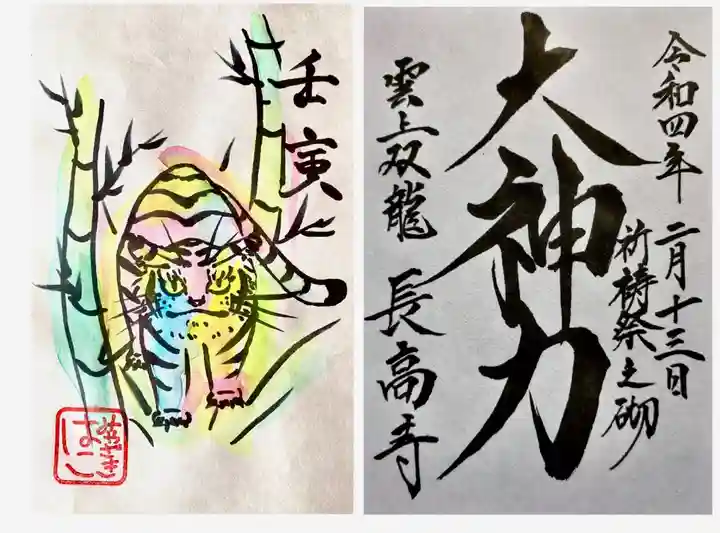 壬寅
はこ
令和四年 二月十三日
祈祷祭之砌
大神力
雲上双龍 長高寺